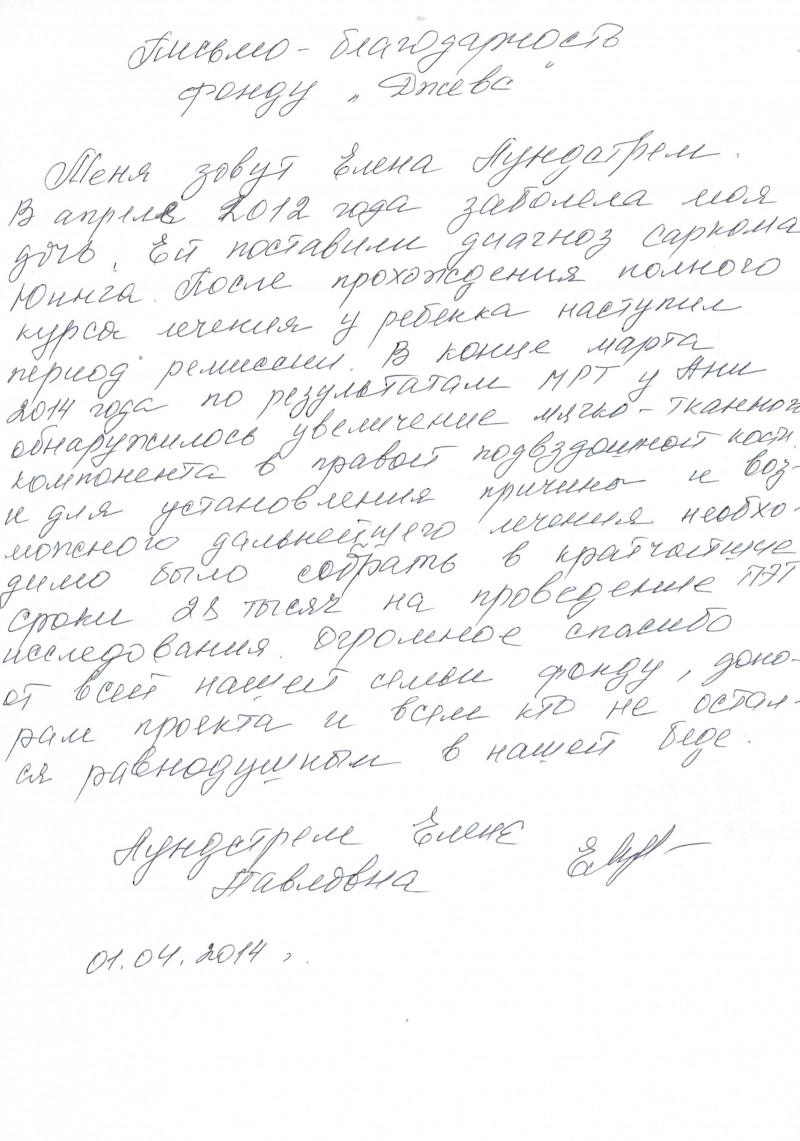 Письмо-благодарность
фонду „Джева“
Меня зовут Елена Лундстрем.
В апреле 2012 года заболела моя
дочь. Ей поставили диагноз саркома
Юинга. После прохождения полного
курса лечения у ребенка наступил
период ремиссии. В конце марта
2014 года по результатам МРТ у Ани
обнаружилось увеличение мягко-тканного
компонента в правой подвздошной кости.
и для установления причины и воз-
можного дальнейшего лечения необхо-
димо было собрать в кратчайшие
сроки 28 тысяч на проведение ПЭТ
исследования. Огромное спасибо
от всей нашей семьи фонду, доно-
рам проекта и всем кто не остал-
ся равнодушным в нашей беде.
Лундстрем Елена
Павловна
01.04.2014